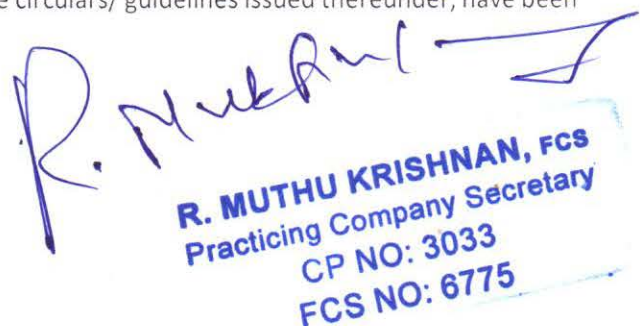 e circulars/ guidelines issued thereunder, have been
R. MUTHU KRISHNAN, FCS
Practicing Company Secretary
CP NO: 3033
FCS NO: 6775